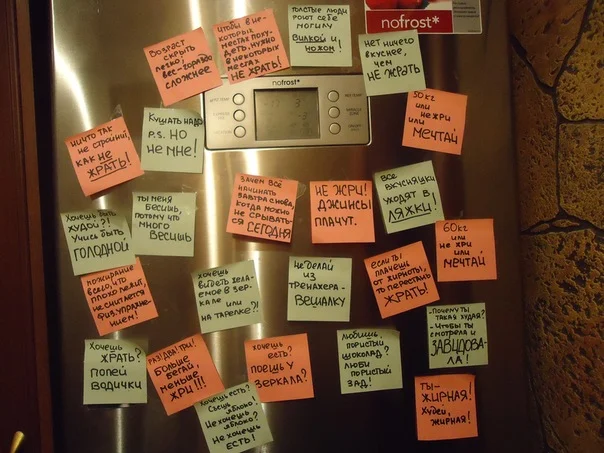 Возраст
скрыть
легко,
вес-гораздо
сложнее
Чтобы в не-
которых
местах поху-
деть, нужно
в некоторых
местах
НЕ ЖРАТЬ!
Толстые люди
роют себе
могилу
Вилкой и
ножом!
нет ничего
вкуснее,
чем
НЕ ЖРАТЬ
nofrost*
nofrost*
50 кг
или
не жри
или
МЕЧТАЙ
ничто так
не стройнит,
как не
ЖРАТЬ!
Кушать надо
P.S. НО
НЕ МНЕ!
Зачем всё
начинать
завтра снова,
когда можно
не срывать-
ся СЕГОДНЯ
НЕ ЖРИ!
ДЖИНСЫ
ПЛАЧУТ.
Все
вкусняшки
уходят в
ЛЯЖКИ!
Хочешь быть
худой?!
Учись быть
ГОЛОДНОЙ
ТЫ МЕНЯ
Бесишь,
потому что
много
Весишь
60 кг
или
не жри
или
МЕЧТАЙ
пожирание
всего, что
плохо лежит,
не считается
физ.упражне-
нием!
хочешь
видеть жела-
емое в зер-
кале или
на тарелке?!
не делай
из
тренажера-
ВЕШАЛКУ
если ты
плачешь
от жирноты,
то перестань
ЖРАТЬ!
-Почему ты
такая худая?
-Чтобы ты
смотрела и
ЗАВИДОВА-
ЛА!
Хочешь
ЖРАТЬ?
попей
водички
РАЗ! ДВА! ТРИ!
Больше
бегай,
меньше
ЖРИ!!!
хочешь
есть?
поешь у
ЗЕРКАЛА?
любишь
пористый
шоколад?
люби
пористый
ЗАД!
Хочешь есть?
Съешь
яблоко!
Не хочешь
яблоко?
Не хочешь
ЕСТЬ!
ТЫ-
ЖИРНАЯ!
Худей,
жирная!